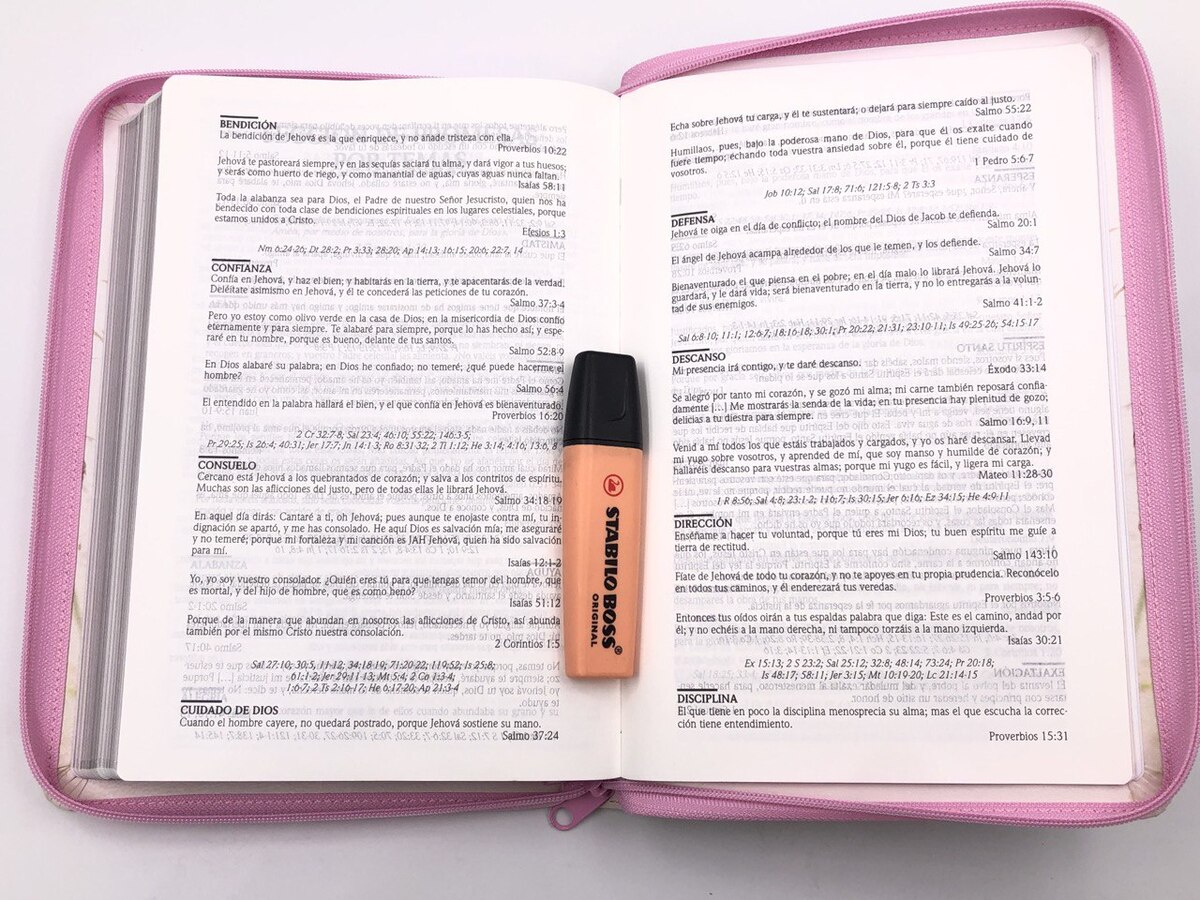 BENDICIÓN
La bendición de Jehová es la que enriquece, y no añade tristeza con ella.
Proverbios 10:22
Jehová te pastoreará siempre, y en las sequías saciará tu alma, y dará vigor a tus huesos;
y serás como huerto de riego, y como manantial de aguas, cuyas aguas nunca faltan.
Isaías 58:11
Toda la alabanza sea para Dios, el Padre de nuestro Señor Jesucristo, quien nos ha
bendecido con toda clase de bendiciones espirituales en los lugares celestiales, porque
estamos unidos a Cristo.
Efesios 1:3
Nm 6:24-26; Dt 28:2; Pr 3:33; 28:20; Ap 14:13; 16:15; 20:6; 22:7, 14
CONFIANZA
Confía en Jehová, y haz el bien; y habitarás en la tierra, y te apacentarás de la verdad.
Deléitate asimismo en Jehová, y él te concederá las peticiones de tu corazón.
Salmo 37:3-4
Pero yo estoy como olivo verde en la casa de Dios; en la misericordia de Dios confío
eternamente y para siempre. Te alabaré para siempre, porque lo has hecho así; y espe-
raré en tu nombre, porque es bueno, delante de tus santos.
Salmo 52:8-9
En Dios alabaré su palabra; en Dios he confiado; no temeré; ¿qué puede hacerme el
hombre?
Salmo 56:4
El entendido en la palabra hallará el bien, y el que confía en Jehová es bienaventurado.
Proverbios 16:20
2 Cr 32:7-8, Sal 23:4; 46:10; 55:22; 146:3-5;
Pr 29:25; Is 26:4; 40:31; Jer 17:7; Jn 14:1-3; Ro 8:31-32; 2 Ti 1:12; He 3:14, 4:16; 13:6, 8
CONSUELO
Cercano está Jehová a los quebrantados de corazón; y salva a los contritos de espíritu.
Muchas son las aflicciones del justo, pero de todas ellas le librará Jehová.
Salmo 34:18-19
En aquel día dirás: Cantaré a ti, oh Jehová; pues aunque te enojaste contra mí, tu in-
dignación se apartó, y me has consolado. He aquí Dios es salvación mía; me aseguraré
y no temeré; porque mi fortaleza y mi canción es JAH Jehová, quien ha sido salvación
para mí.
Isaías 12:1-2
Yo, yo soy vuestro consolador. ¿Quién eres tú para que tengas temor del hombre, que
es mortal, y del hijo de hombre, que es como heno?
Isaías 51:12
Porque de la manera que abundan en nosotros las aflicciones de Cristo, así abunda
también por el mismo Cristo nuestra consolación.
2 Corintios 1:5
Sal 27:10; 30:5, 11-12; 34:18-19; 71:20-22; 119:52; Is 25:8;
61:1-2; Jer 29:11-13; Mt 5:4; 2 Co 1:3-4;
1:6-7; 2 Ts 2:16-17; He 6:17-20; Ap 21:3-4
CUIDADO DE DIOS
Cuando el hombre cayere, no quedará postrado, porque Jehová sostiene su mano.
Salmo 37:24
STABILO BOSS®
ORIGINAL
Echa sobre Jehová tu carga, y él te sustentará; o dejará para siempre caído al justo.
Salmo 55:22
Humillaos, pues, bajo la poderosa mano de Dios, para que él os exalte cuando
fuere tiempo; echando toda vuestra ansiedad sobre él, porque él tiene cuidado de
vosotros.
1 Pedro 5:6-7
Job 10:12; Sal 17:8; 71:6; 121:5-8; 2 Ts 3:3
DEFENSA
Jehová te oiga en el día de conflicto; el nombre del Dios de Jacob te defienda.
Salmo 20:1
El ángel de Jehová acampa alrededor de los que le temen, y los defiende.
Salmo 34:7
Bienaventurado el que piensa en el pobre; en el día malo lo librará Jehová. Jehová lo
guardará, y le dará vida; será bienaventurado en la tierra, y no lo entregarás a la volun-
tad de sus enemigos.
Salmo 41:1-2
Sal 6:8-10; 11:1; 12:6-7; 18:16-18; 30:1; Pr 20:22, 21:31; 23:10-11; Is 49:25-26; 54:15-17
DESCANSO
Mi presencia irá contigo, y te daré descanso.
Éxodo 33:14
Se alegró por tanto mi corazón, y se gozó mi alma; mi carne también reposará confia-
damente [...] Me mostrarás la senda de la vida; en tu presencia hay plenitud de gozo;
delicias a tu diestra para siempre.
Salmo 16:9, 11
Venid a mí todos los que estáis trabajados y cargados, y yo os haré descansar. Llevad
mi yugo sobre vosotros, y aprended de mí, que soy manso y humilde de corazón; y
hallaréis descanso para vuestras almas; porque mi yugo es fácil, y ligera mi carga.
Mateo 11:28-30
1 R 8:56; Sal 4:8; 23:1-2; 116:7; Is 30:15; Jer 6:16; Ez 34:15; He 4:9-11
DIRECCIÓN
Enséñame a hacer tu voluntad, porque tú eres mi Dios; tu buen espíritu me guíe a
tierra de rectitud.
Salmo 143:10
Fíate de Jehová de todo tu corazón, y no te apoyes en tu propia prudencia. Reconócelo
en todos tus caminos, y él enderezará tus veredas.
Proverbios 3:5-6
Entonces tus oídos oirán a tus espaldas palabra que diga: Este es el camino, andad por
él; y no echéis a la mano derecha, ni tampoco torzáis a la mano izquierda.
Isaías 30:21
Ex 15:13; 2 S 23:2; Sal 25:12; 32:8; 48:14; 73:24; Pr 20:18;
Is 48:17; 58:11; Jer 3:15; Mt 10:19-20; Lc 21:14-15
DISCIPLINA
El que tiene en poco la disciplina menosprecia su alma; mas el que escucha la correc-
ción tiene entendimiento.
Proverbios 15:31